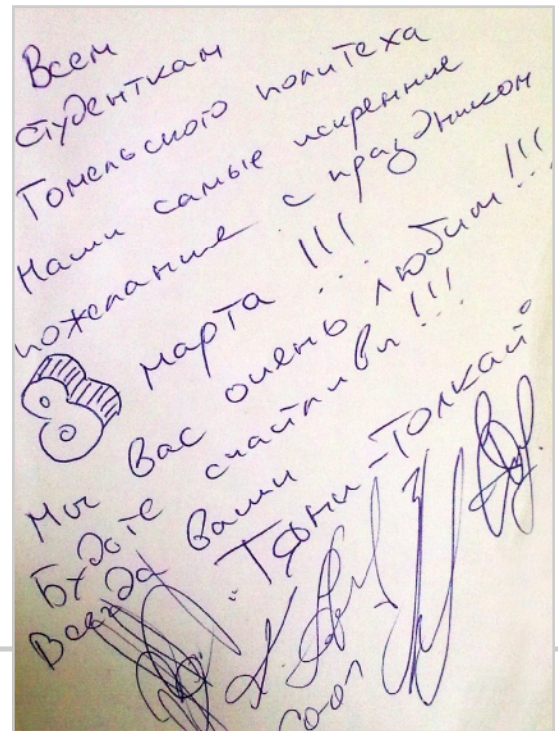 Всем
студенткам
Гомельского политеха
Наши самые искренние
пожелание с праздником
8 марта !!!
Мы Вас очень любим !!!
Будте счайливы !!!
Всегда Ваши
"Тяни-Толкай"